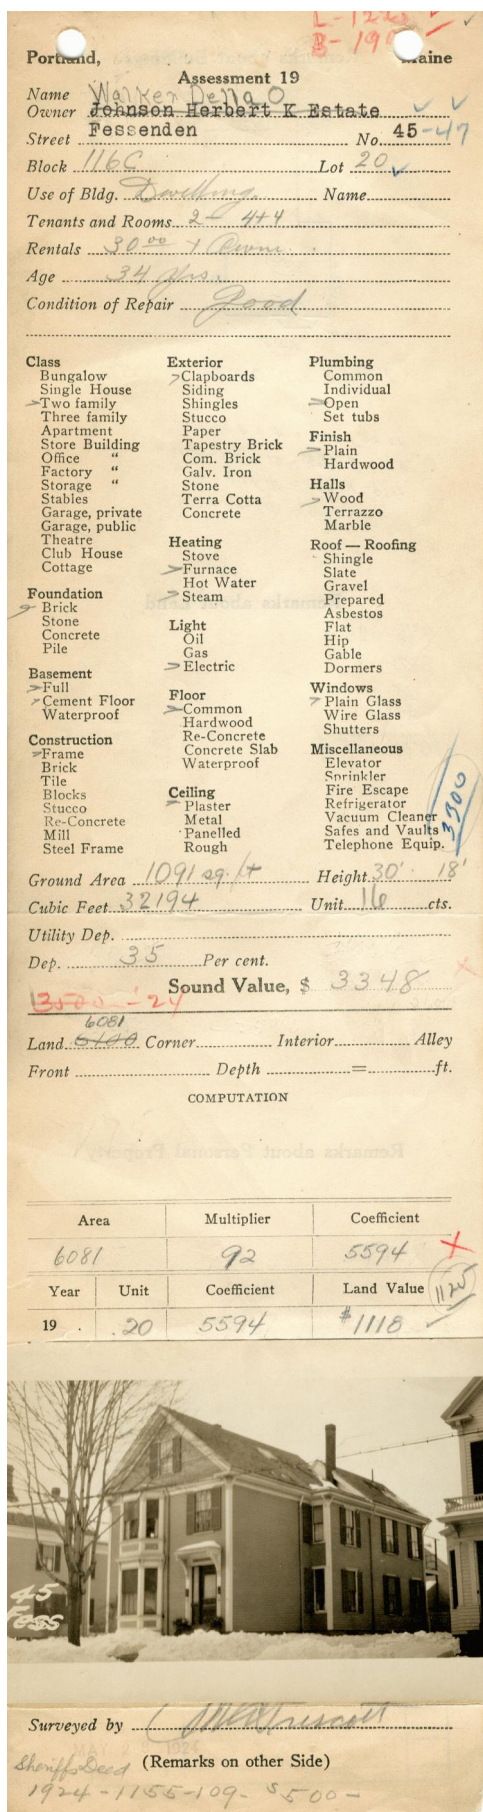 L-1225
B-190
Portland, Maine
Assessment 19
Name Walker Della O
Owner Johnson Herbert K Estate
Street Fessenden No. 45-47
Block 116C Lot 20
Use of Bldg. Dwelling Name
Tenants and Rooms 2- 4+4
Rentals 30 00 + Owner
Age 34 yrs.
Condition of Repair Good
Class
Bungalow
Single House
Two family
Three family
Apartment
Store Building
Office "
Factory "
Storage "
Stables
Garage, private
Garage, public
Theatre
Club House
Cottage
Foundation
Brick
Stone
Concrete
Pile
Basement
Full
Cement Floor
Waterproof
Construction
Frame
Brick
Tile
Blocks
Stucco
Re-Concrete
Mill
Steel Frame
Exterior
Clapboards
Siding
Shingles
Stucco
Paper
Tapestry Brick
Com. Brick
Galv. Iron
Stone
Terra Cotta
Concrete
Heating
Stove
Furnace
Hot Water
Steam
Light
Oil
Gas
Electric
Floor
Common
Hardwood
Re-Concrete
Concrete Slab
Waterproof
Ceiling
Plaster
Metal
Panelled
Rough
Plumbing
Common
Individual
Open
Set tubs
Finish
Plain
Hardwood
Halls
Wood
Terrazzo
Marble
Roof — Roofing
Shingle
Slate
Gravel
Prepared
Asbestos
Flat
Hip
Gable
Dormers
Windows
Plain Glass
Wire Glass
Shutters
Miscellaneous
Elevator
Sprinkler
Fire Escape
Refrigerator
Vacuum Cleaner
Safes and Vaults
Telephone Equip.
3300
Ground Area 1091 sq. ft Height 30' 18'
Cubic Feet 32194 Unit 16 cts.
Utility Dep.
Dep. 35 Per cent.
Sound Value, $ 3348
3500-'24
6081
Land 6100 Corner Interior Alley
Front Depth = ft.
COMPUTATION
Area Multiplier Coefficient
6081 92 5594
Year Unit Coefficient Land Value 1125
19 .20 5594 $1118
45
Fess
Surveyed by
(Remarks on other Side)
Sheriffs Deed
1924-1155-109- $500-